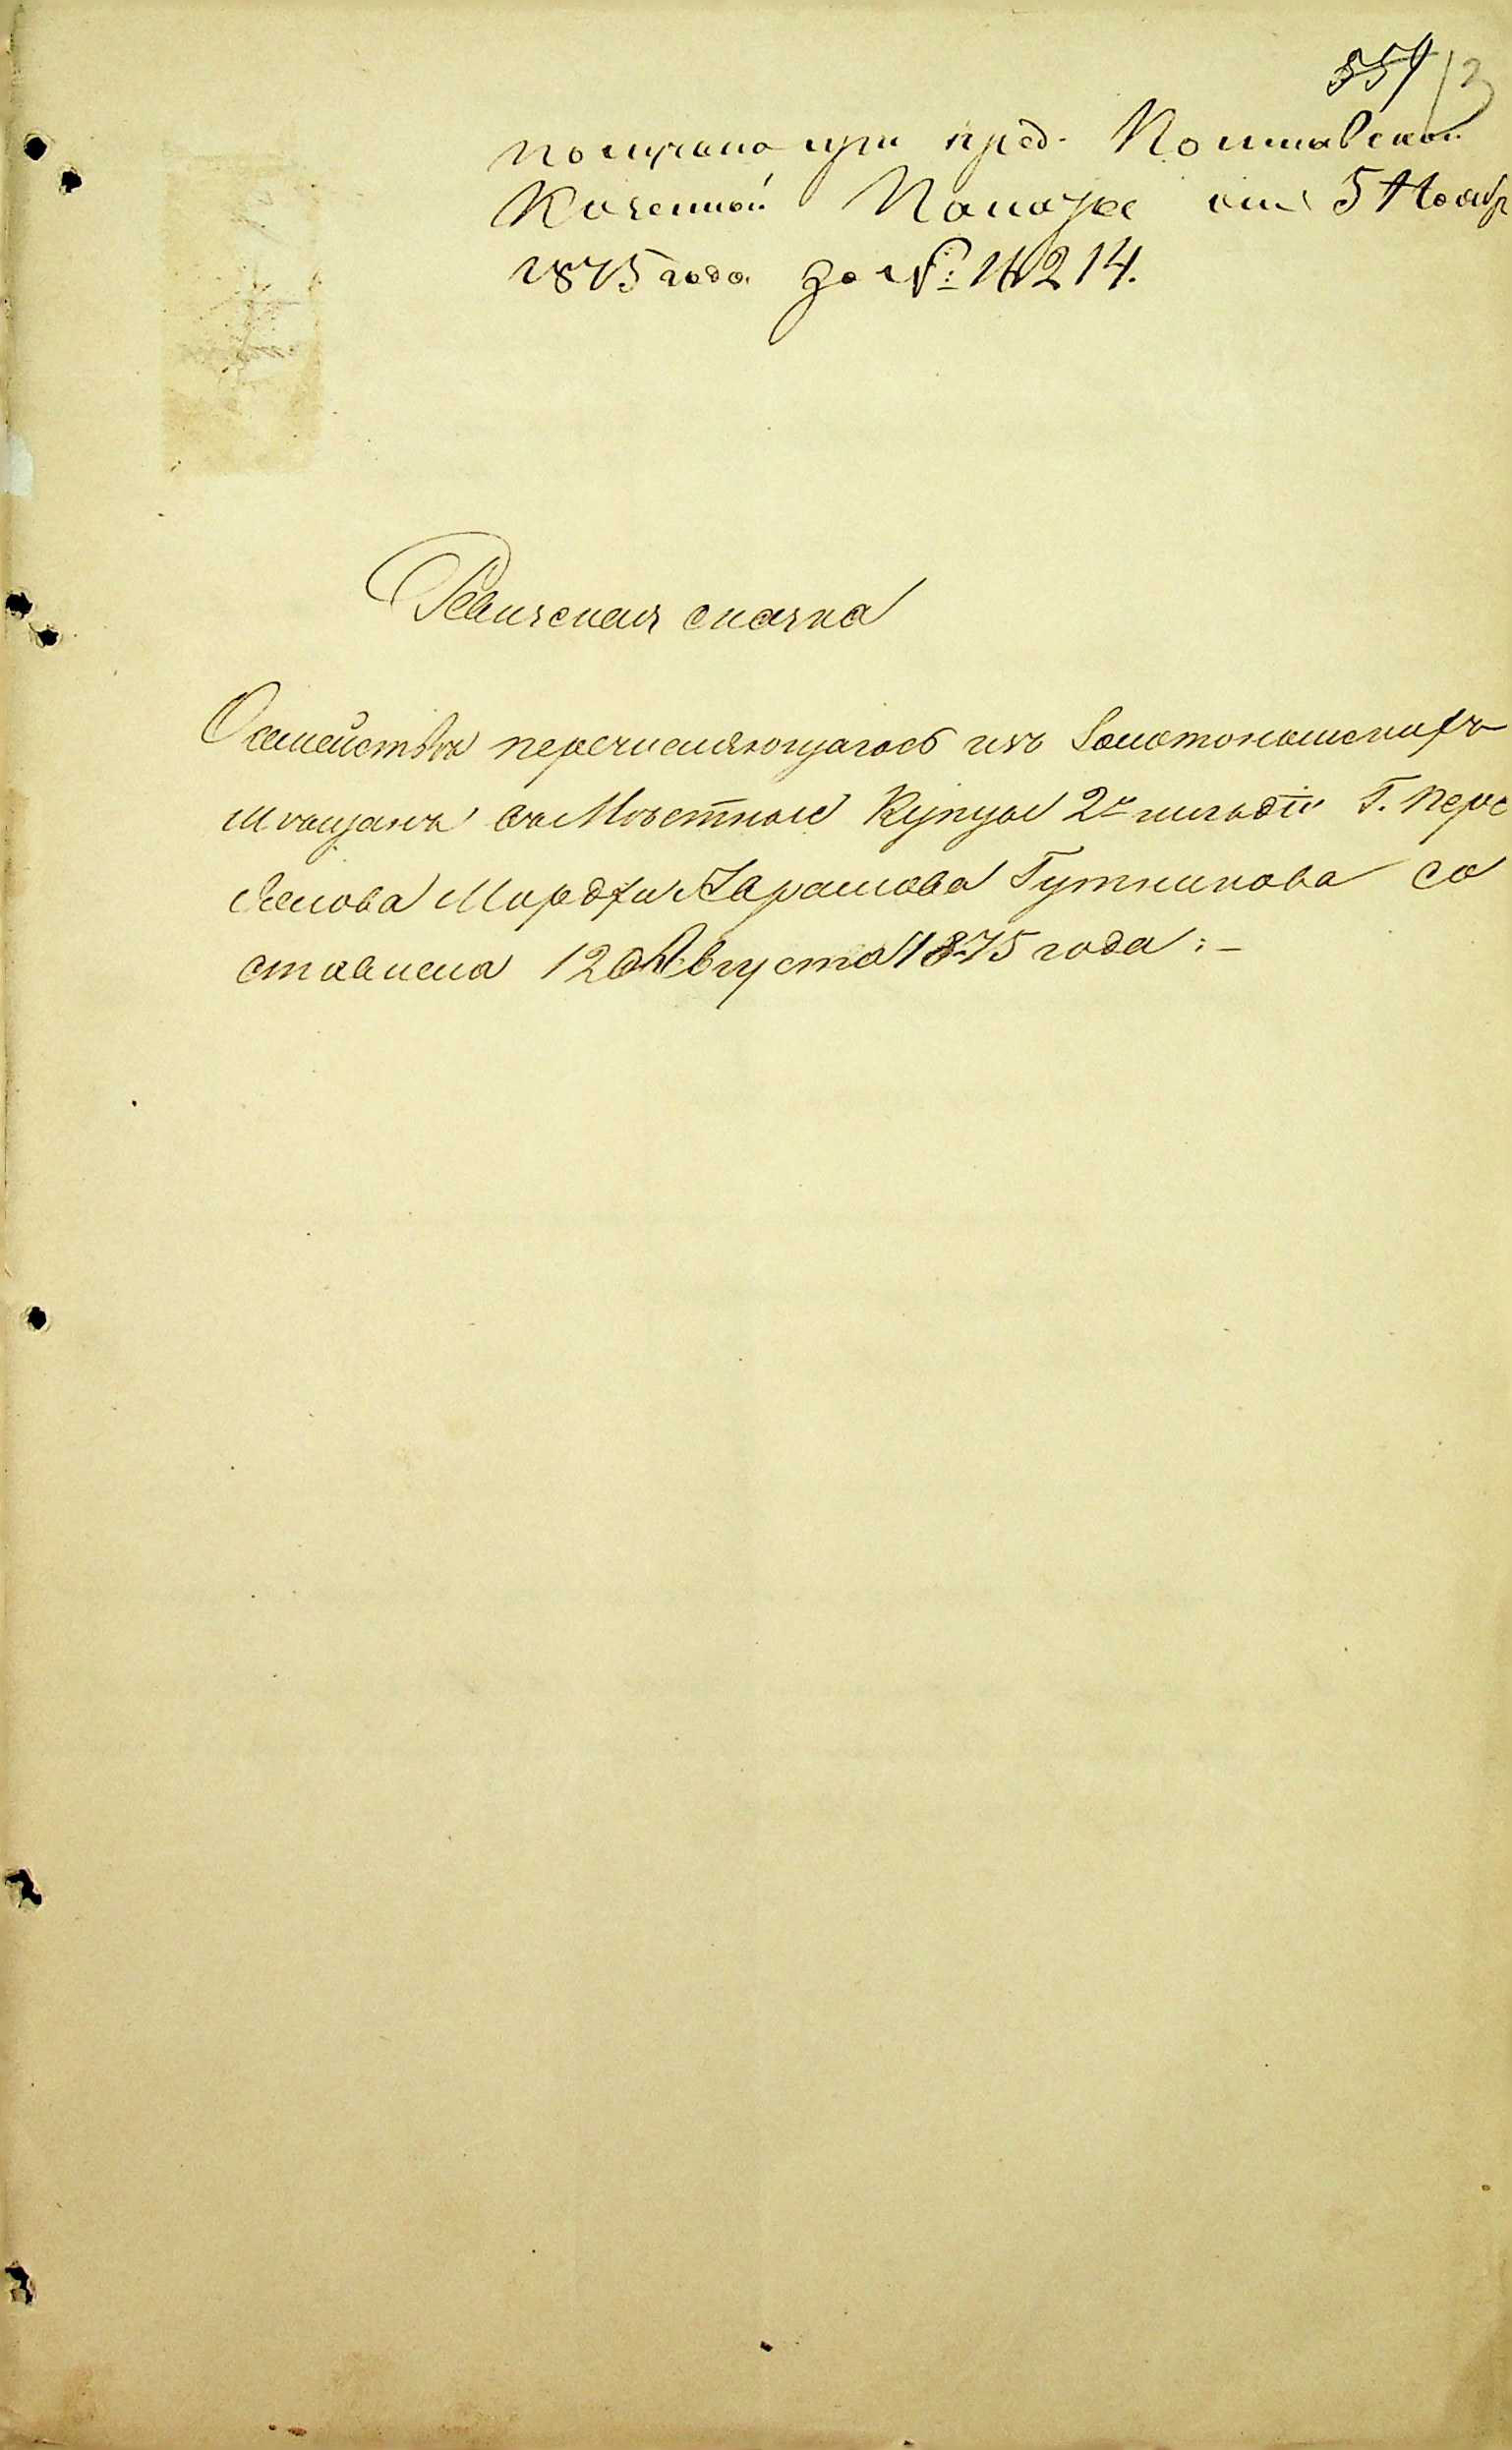 554 13
Получено при пред. Полтавской
Казенной Палаты от 5 Ноябр
1875 года за №: 14214.
Ревизская сказка
О семействѣ перечисляющагось изъ Золотоношскихъ
мѣщанъ въ Мѣстные Купцы 2й гильдіи Г. Пере
яслова Мордхи Абрамова Гутникова со
ставлена 12 Августа 1875 года :-